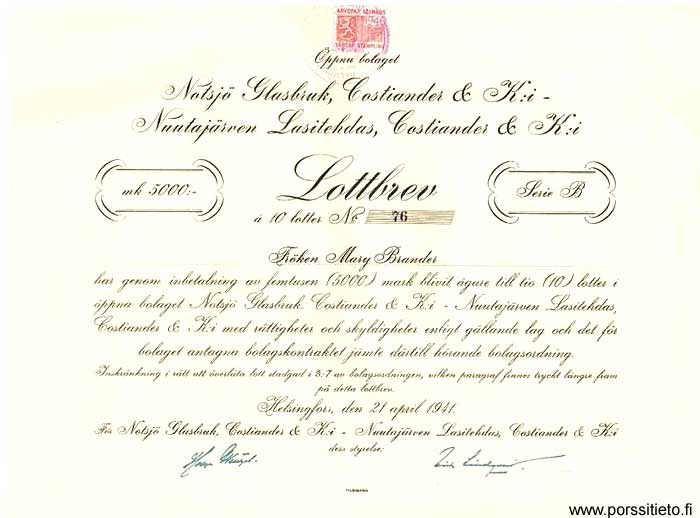 ARVOPAP. LEIMAUS
VÄRDEP. STÄMPLING
Öppna bolaget
Notsjö Glasbruk, Costiander & K:i -
Nuutajärven Lasitehdas, Costiander & K:i
mk 5000:-
Lottbrev
Serie B
à 10 lotter No 76
Fröken Mary Brander
har genom inbetalning av femtusen (5000) mark blivit ägare till tio (10) lotter i
öppna bolaget Notsjö Glasbruk. Costiander & K:i - Nuutajärven Lasitehdas,
Costiander & K:i med rättigheter och skyldigheter enligt gällande lag och det för
bolaget antagna bolagskontraktet jämte därtill hörande bolagsordning.
Inskränkning i rätt att överlåta lott stadgad i §:7 av bolagsordningen, vilken paragraf finnes tryckt längre fram
på detta lottbrev.
Helsingfors, den 21 april 1941.
För Notsjö Glasbruk, Costiander & K:i - Nuutajärven Lasitehdas, Costiander & K:i
dess styrelse:
TILGMANN
www.porssitieto.fi